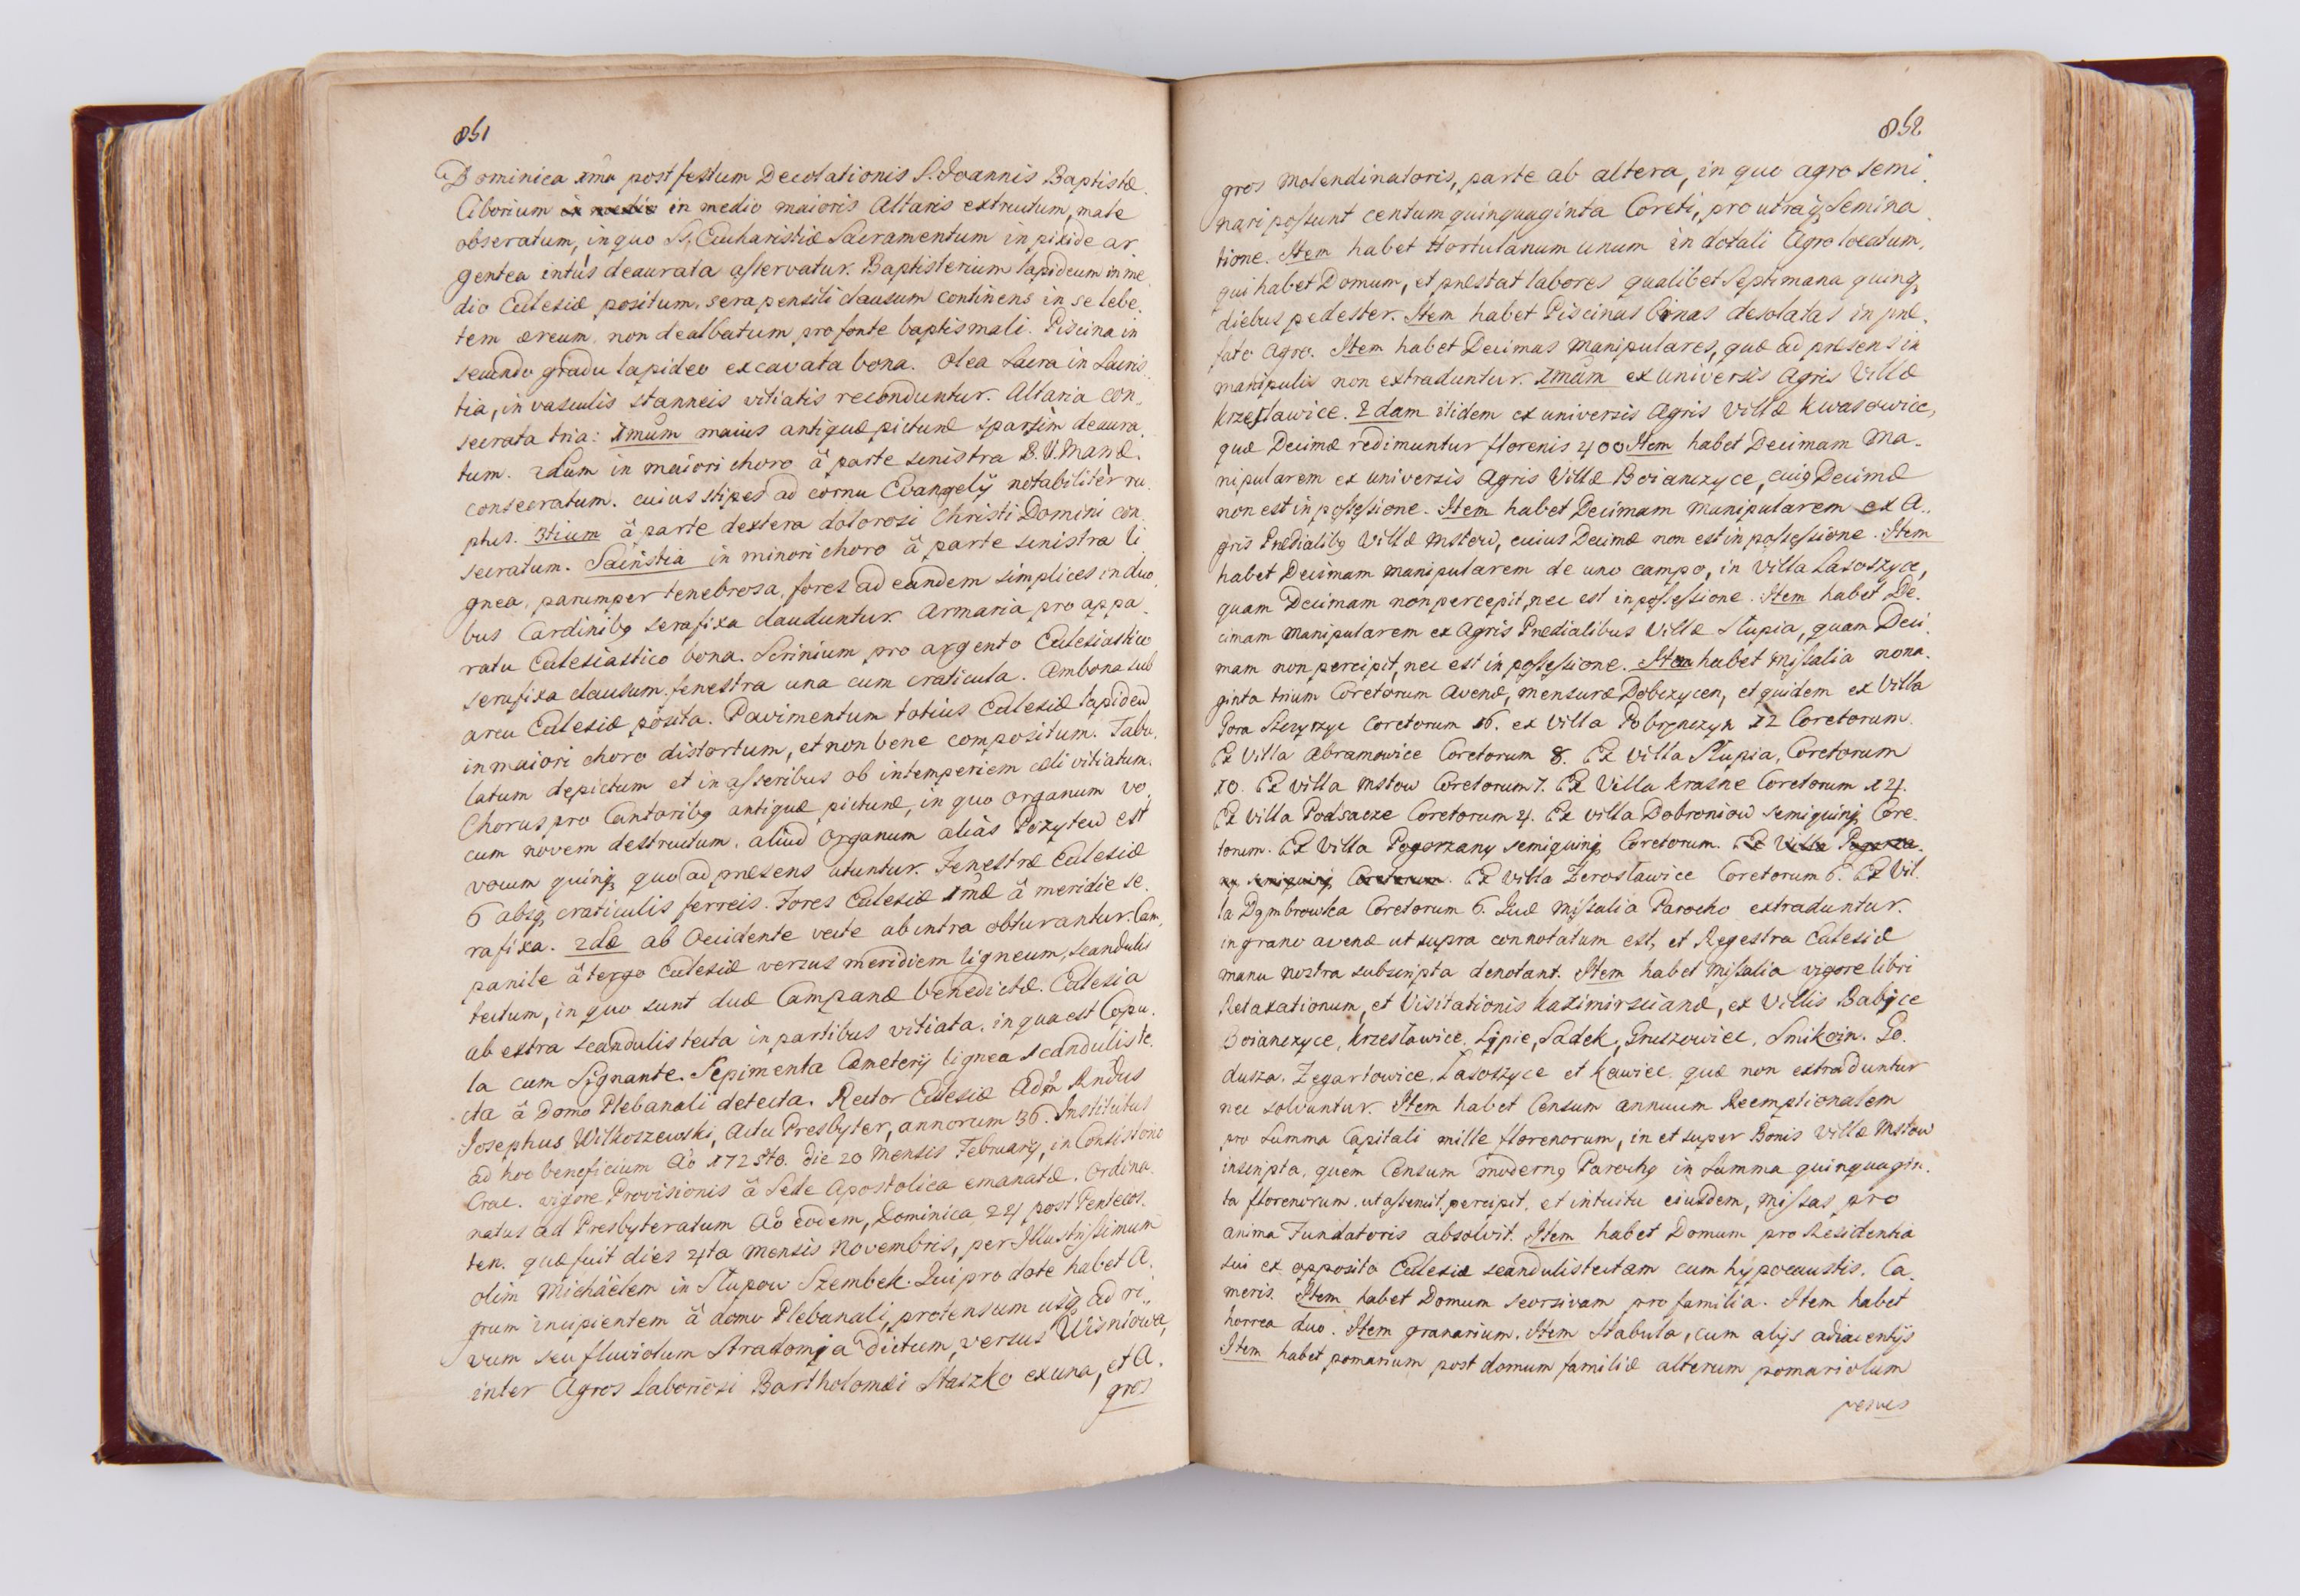 851
Dominica 1ma post festum Decolationis S. Joannis Baptistæ.
Ciborium in medio in medio maioris Altaris extructum, male
obseratum, in quo SS. Eucharistiæ Sacramentum in pixide ar
gentea intus deaurata asservatur. Baptisterium lapideum in me
dio Ecclesiæ positum, sera pensili clausum continens in se lebe,
tem æreum, non dealbatum pro fonte baptismali. Piscina in
secundo gradu lapideo excavata bona. Olea Sacra in Sacris,
tia, in vasculis stanneis vitiatis reconduntur. Altaria con,,
secrata tria: 1mum maius antiquæ picturæ sparsim deaura,
tum. 2dum in maiori choro â parte sinistra B. V. Mariæ.
consecratum. cuius stipes ad cornu Evangelÿ notabilitèr ru,
ptus. 3tium â parte dextera dolorosi Christi Domini con,
secratum. Sacristia in minori choro â parte sinistra li
gnea, parumper tenebrosa, fores ad eandem simplices in duo,
bus Cardinibq serafixa clauduntur. Armaria pro appa,
ratu Ecclesiastico bona. Scrinium pro argento Ecclesiastico
serafixa clausum. fenestra una cum craticula. Ambona sub
arcu Ecclesiæ posita. Pavimentum totius Ecclesiæ lapideu,
in maiori choro distortum, et non bene compositum. Tabu,
latum depictum et in asseribus ob intemperiem cæli vitiatum.
Chorus pro Cantoribq antiquæ picturæ, in quo organum vo,
cum novem destructum. aliud organum aliàs Pozytew est
vocum quinq, quo ad præsens utuntur. Fenestræ Ecclesiæ
6 absq craticulis ferreis. Fores Ecclesiæ 1mæ â meridie se,
rafixa. 2dæ ab Occidente vecte ab intra obturantur. Cam,
panile â tergo Ecclesiæ versus meridiem ligneum, scandulis
tectum, in quo sunt duæ Campanæ benedictæ. Ecclesia
ab extra scandulis tecta in partibus vitiata. in qua est Copu,
la cum Signante. Sepimenta Cæmeterÿ lignea scandulis te,
cta â Domo Plebanali detecta. Rector Ecclesiæ Adm Rndus
Josephus Wilkoszewski, Actu Presbyter, annorum 36. Institutus
ad hoc beneficium Ao 1725to. die 20 mensis Februarÿ, in Consistorio
Crac. vigore Provisionis â Sede Apostolica emanatæ. Ordina,
natus ad Presbyteratum Ao eodem, Dominica 24 post Pentecos,
ten. quæ fuit dies 4ta mensis Novembris, per Illustrissimum
olim Michäelem in Słupow Szembek. Qui pro dote habet A,
grum incipientem â domo Plebanali, protensum usq ad ri,,
vum seu fluviolum Stradomja dictum, versus Wisniowa,
inter Agros Laboriosi Bartholomæi Staszko ex una, et A,
gros
852
gros Molendinatoris, parte ab altera, in quo agro semi,
nari possunt centum quinquaginta Coreti, pro utraq Semina,
tione. Item habet Hortulanum unum in dotali Agro locatum,
qui habet Domum, et præstat labores qualibet Septimana quinq
diebus pedester. Item habet Piscinas binas desolatas in præ,
fato Agro. Item habet Decimas Manipulares, quæ ad præsens in
manipulis non extraduntur. 1mam ex universis Agris Villæ
Krzesławice. 2dam itidem ex universis Agris villæ Kwasowice,
quæ Decimæ redimuntur florenis 400 Item habet Decimam Ma,,
nipularem ex universis Agris Villæ Boianczyce, cuiq Decimæ
non est in possessione. Item habet Decimam Manipularem ex A,,
gris Prædialibq Villæ Mstow, cuius Decimæ non est in possessione. Item
habet Decimam Manipularem de uno campo, in Villa Lasoszyce,
quam Decimam non percepit, nec est in possessione. Item habet De,
cimam Manipularem ex Agris Prædialibus Villæ Słupia, quam Deci,
mam non percipit, nec est in possessione. Item habet Missalia nona,
ginta trium Coretorum Avenæ, mensuræ Dobczycen, et quidem ex Villa
Gora Szczyrzyc Coretorum 16. ex Villa Pobręczyn 12 Coretorum.
Ex Villa Abramowice Coretorum 8. Ex Villa Słupia, Coretorum
10. Ex villa Mstow Coretorum 7. Ex Villa Krasne Coretorum 24.
Ex Villa Podsacze Coretorum 4. Ex villa Dobroniow semiquinq Core,
torum. Ex Villa Pogorzany semiquinq Coretorum. Ex Villa Pogorza,
ny semiquinq Coretorum. Ex Villa Zerosławice Coretorum 6. Ex Vil,
la Dąmbrowka Coretorum 6. Quæ Missalia Parocho extraduntur.
in grano avenæ ut supra connotatum est, et Regestra Ecclesiæ
manu nostra subscripta denotant. Item habet Missalia vigore libri
Retaxationum, et Visitationis Kazimirscianæ, ex Villis Babice
Boianczyce, Krzesławice, Lipie, Sadek, Gruszowiec, Smikoin. Go,
dusza. Zegartowice, Lasoszyce et Kawiec, quæ non extraduntur
nec solvuntur. Item habet Censum annuum Reemptionalem
pro Summa Capitali mille florenorum, in et super Bonis Villæ Mstow
inscripta, quem Censum modernq Parochq in Summa quinquagin,
ta florenorum, ut asseruit, percipit, et intuitu eiusdem, missas pro
anima Fundatoris absolvit. Item habet Domum pro Residentia
sui ex opposito Ecclesiæ scandulis tectam cum hÿpocaustis, Ca,
meris. Item habet Domum seorsivam pro familia. Item habet
horrea duo. Item granarium. Item stabula, cum alÿs adiacentÿs
Item habet pomarium post domum familiæ alterum pomariolum